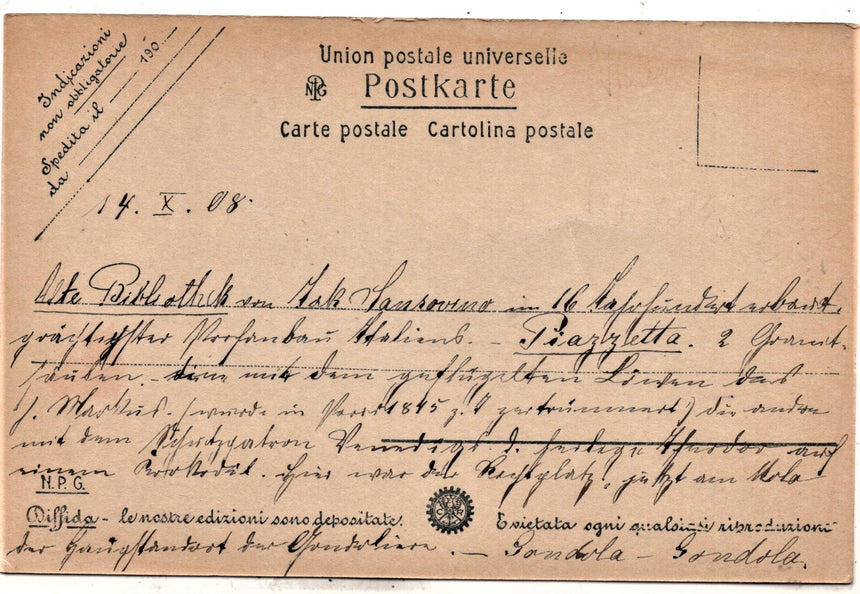 Indicazioni
non obbligatorie
Spedita il 190
da
Union postale universelle
NPG Postkarte
Carte postale Cartolina postale
14. X. 08.
Alte Bibliothek von Jak Sansovino im 16 Jahrhundert erbaut.
prächtigster Profanbau Italiens. – Piazzetta. 2 Granit-
säulen. eine mit dem geflügelten Löwen des
h. Markus. (wurde in Paris 1815 z. T zertrümmert) die andre
mit dem Schutzpatron Venedigs d. heilige Theodor auf
einem Krokodil. Hier war der Richtplatz, jetzt am Molo
N.P.G.
Diffida – le nostre edizioni sono depositate. E vietata ogni qualsiasi riproduzione
der Hauptstandort der Gondoliere. – Gondola – Gondola.